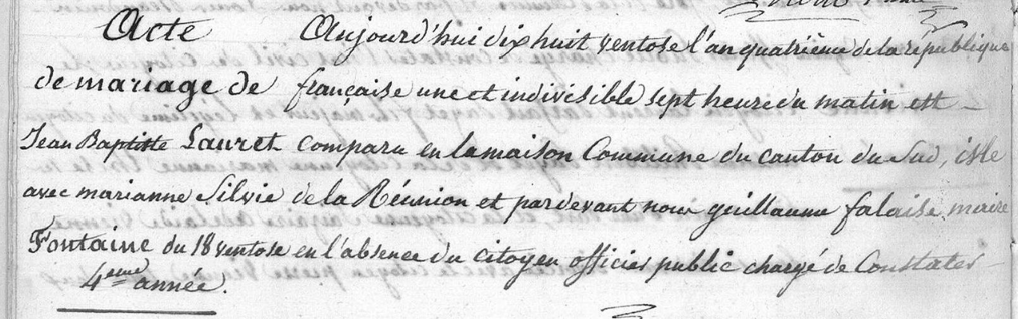 Acte Aujourd'hui dix huit ventose l'an quatrième de la république
de mariage de française une et indivisible sept heure du matin est
Jean Baptiste Lauret comparu en la maison Commune du canton du Sud, isle
avec marianne Silvie de la Réunion et pardevant nous guillaume falaise, maire
Fontaine du 18 ventose en l'absence du citoyen officier public chargé de Constater
4eme année.